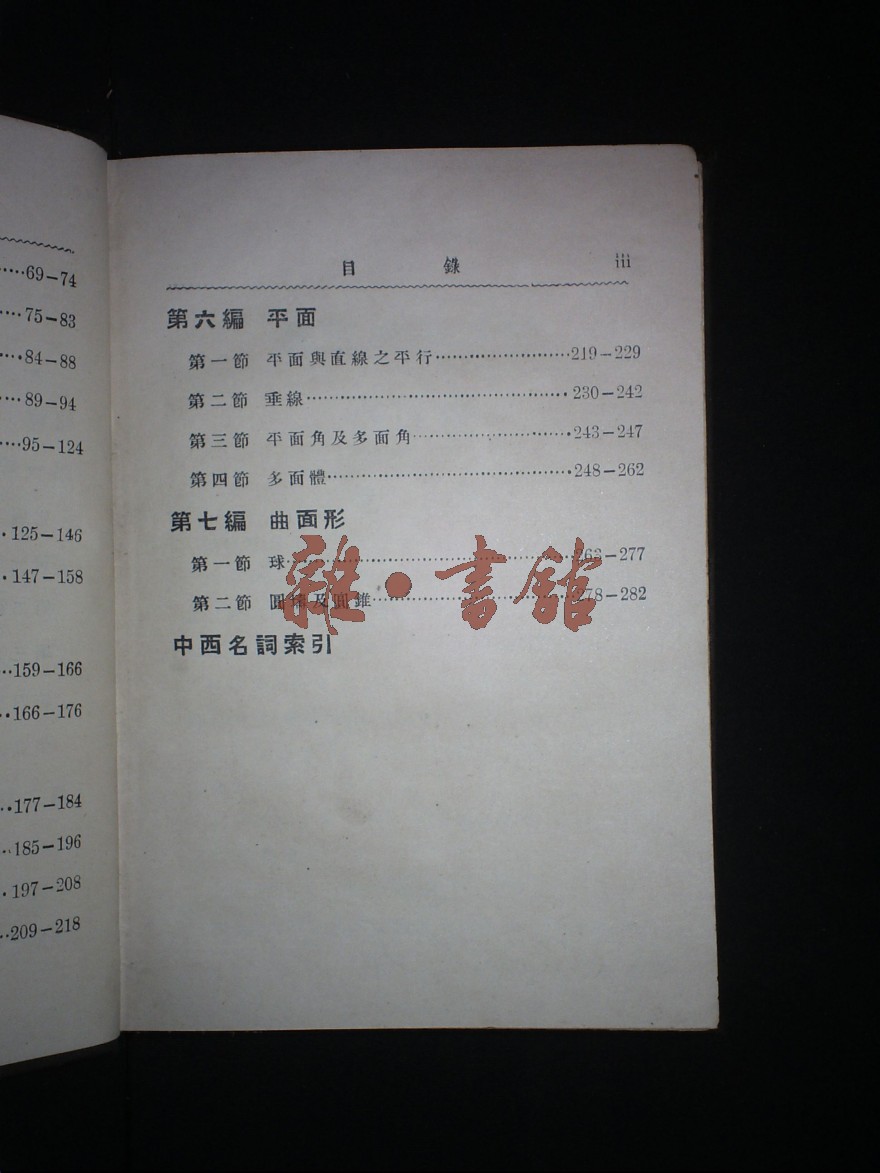 ……69—74
……75—83
……84—88
……89—94
……95—124
……125—146
……147—158
……159—166
……166—176
……177—184
……185—196
……197—208
……209—218
目錄 iii
第六編 平面
第一節 平面與直線之平行……219—229
第二節 垂線……230—242
第三節 平面角及多面角……243—247
第四節 多面體……248—262
第七編 曲面形
第一節 球……263—277
第二節 圓㙛及圓錐……278—282
中西名詞索引
雜·書館